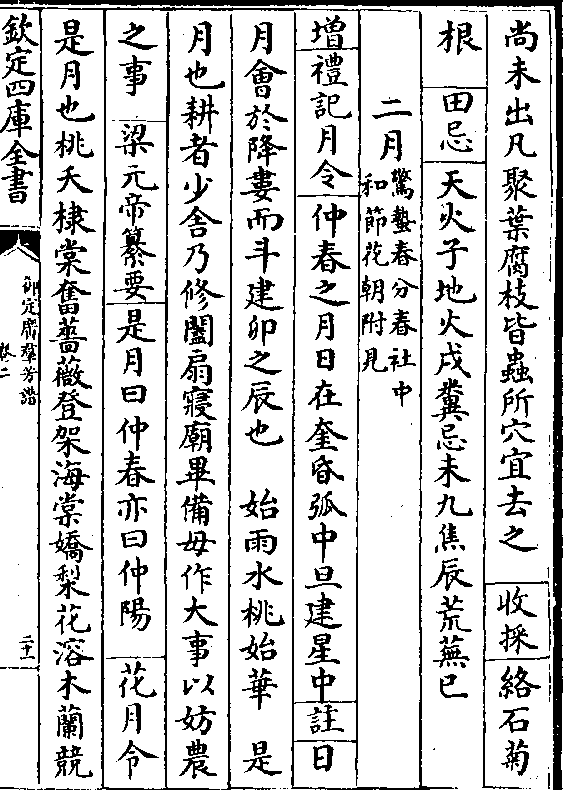 尚未出凡聚葉腐枝皆蟲所穴宜去之 收採 絡石菊
根 田忌 天火子地火戌糞忌未九焦辰荒蕪巳
二月 驚蟄春分春社中
和節花朝附見
增 禮記月令 仲春之月日在奎昏弧中旦建星中 註 日
月會於降婁而斗建卯之辰也 始雨水桃始華 是
月也耕者少舍乃修闔扇寢廟畢備毋作大事以妨農
之事 梁元帝纂要 是月曰仲春亦曰仲陽 花月令
是月也桃夭棣棠奮薔薇登架海棠嬌梨花溶木蘭競
欽定四庫全書
御定廣羣芳譜
卷二
二十一